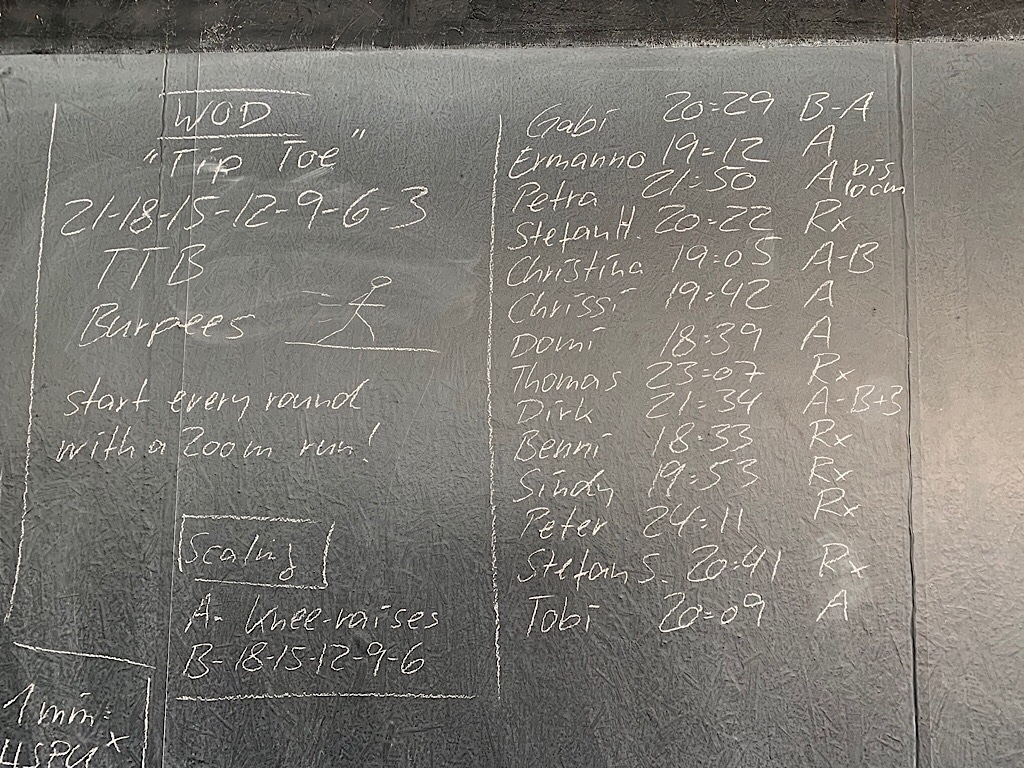 WOD
"Tip Toe"
21-18-15-12-9-6-3
TTB
Burpees
start every round
with a 200m run!
Scaling
A- knee-raises
B- 18-15-12-9-6
1 min:
HSPU x
Gabi 20:29 B-A
Ermanno 19:12 A
Petra 21:50 A bis 10cm
Stefan H. 20:22 Rx
Christina 19:05 A-B
Chrissi 19:42 A
Domi 18:39 A
Thomas 23:07 Rx
Dirk 21:34 A-B+3
Benni 18:33 Rx
Sindy 19:53 Rx
Peter 24:11 Rx
Stefan S. 20:41 Rx
Tobi 20:09 A